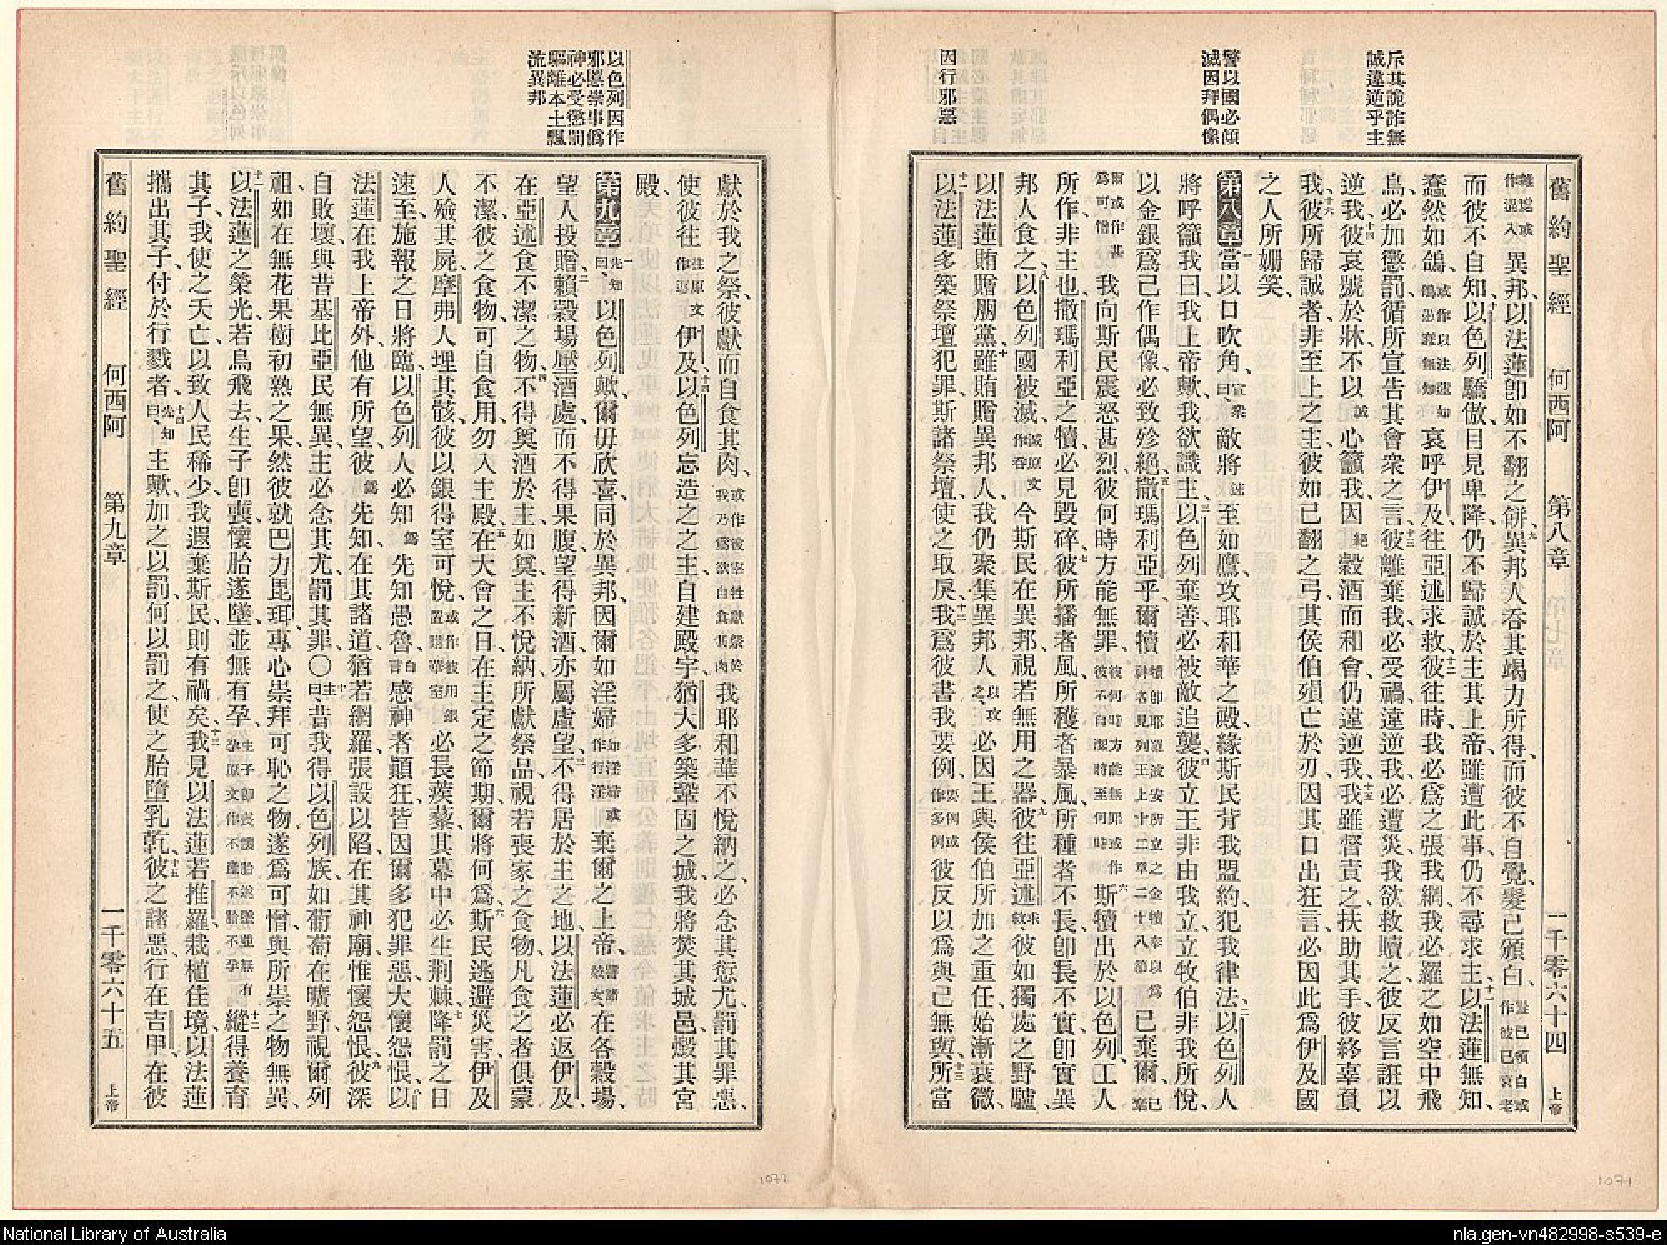 斥其詭詐無
誠違逆乎主
警以國必傾
滅因拜偶像
因行邪惡
舊約聖經 何西阿 第八章 一千零六十四 上帝
異邦、以法蓮卽如不翻之餅、九異邦人吞其竭力所得、而彼不自覺、髮已頒白、
而彼不自知、十以色列驕傲、目見卑降、仍不歸誠於主其上帝、雖遭此事、仍不尋求主、十一以法蓮無知、
蠢然如鴿、哀呼伊及、往亞述求救、十二彼往時、我必爲之張我網、我必羅之如空中飛
鳥、必加懲罰、循所宣告其會衆之言、十三彼離棄我、必受禍、違逆我、必遭災、我欲救贖之、彼反言誑以
逆我、十四彼哀號於牀、不以誠心籲我、因穀酒而和會、仍違逆我、十五我雖督責之、扶助其手、彼終辜負
我、十六彼所歸誠者、非至上之主、彼如已翻之弓、其侯伯殞亡於刃、因其口出狂言、必因此爲伊及國
之人所姍笑、
第八章一當以口吹角、宣衆曰、敵將速至如鷹、攻耶和華之殿、緣斯民背我盟約、犯我律法、二以色列人
將呼籲我曰、我上帝歟、我欲識主、三以色列棄善、必被敵追襲、四彼立王非由我立、立牧伯非我所悅、
以金銀爲己作偶像、必致殄絕、五撒瑪利亞乎、爾犢已棄爾、
我向斯民震怒甚烈、彼何時方能無罪、六斯犢出於以色列、工人
所作、非主也、撒瑪利亞之犢、必見毀碎、七彼所播者風、所穫者暴風、所種者不長、卽長不實、卽實異
邦人食之、八以色列國被滅、今斯民在異邦、視若無用之器、九彼往亞述求救、彼如獨處之野驢、
以法蓮賄贈朋黨、十雖賄贈異邦人、我仍聚集異邦人以攻之、必因王與侯伯所加之重任、始漸衰微、
十一以法蓮多築祭壇犯罪、斯諸祭壇、使之取戾、十二我爲彼書我要例、彼反以爲與己無與、十三所當
以色列因作
邪惡崇事僞
神必受懲罰
驅離本土飄
流異邦
獻於我之祭、彼獻而自食其肉、我耶和華不悅納之、必念其愆尤、罰其罪惡、
使彼往伊及、十四以色列忘造之之主、自建殿宇、猶大多築鞏固之城、我將焚其城邑、燬其宮
殿、
第九章一先知曰、以色列歟、爾毋欣喜、同於異邦、因爾如淫婦、棄爾之上帝、在各穀場、
望人投贈、二穀場壓酒處、而不得果腹、望得新酒、亦屬虛望、三不得居於主之地、以法蓮必返伊及、
在亞述食不潔之物、四不得奠酒於主、如奠主不悅納、所獻祭品、視若喪家之食物、凡食之者俱蒙
不潔、彼之食物、可自食用、勿入主殿、五在大會之日、在主定之節期、爾將何爲、六斯民逃避災害、伊及
人殮其屍、摩弗人埋其骸、彼以銀得室可悅、必長蒺藜、其幕中必生荆棘、七降罰之日
速至、施報之日將臨、以色列人必知、先知愚魯、感神者顚狂、皆因爾多犯罪惡、大懷怨恨、八以
法蓮在我上帝外、他有所望、彼先知在其諸道、猶若網羅張設以陷、在其神廟惟懷怨恨、九彼深
自敗壞、與昔基比亞民無異、主必念其尤、罰其罪、〇十主曰、昔我得以色列族、如葡萄在曠野、視爾列
祖、如在無花果樹初熟之果、然彼就巴力毘珥、專心崇拜可恥之物、遂爲可憎、與所崇之物無異、
十一以法蓮之榮光、若鳥飛去、生子卽喪、懷胎遂墜、並無有孕、十二縱得養育
其子、我使之夭亡、以致人民稀少、我遐棄斯民、則有禍矣、十三我見以法蓮若推羅栽植佳境、以法蓮
攜出其子、付於行戮者、十四先知曰、主歟、加之以罰、何以罰之、使之胎墮乳乾、十五彼之諸惡行在吉甲、在彼
舊約聖經 何西阿 第九章 一千零六十五 上帝
1072
1071
National Library of Australia
nla.gen-vn482998-s539-e